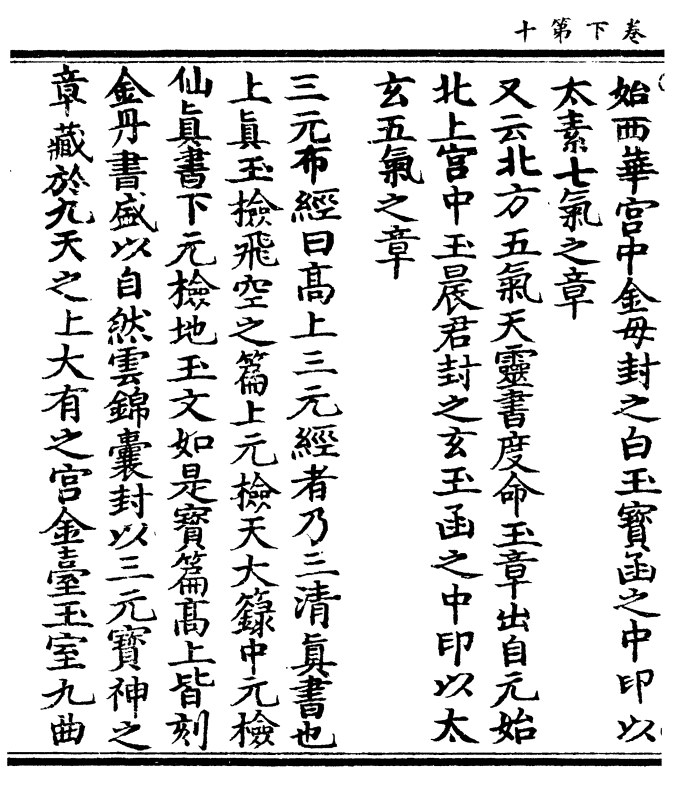 卷下第十
始西華宮中金母封之白玉寶函之中印以
太素七氣之章
又云北方五氣天靈書度命玉章出自元始
北上宮中玉晨君封之玄玉函之中印以太
玄五氣之章
三元布經曰高上三元經者乃三清眞書也
上眞玉撿飛空之篇上元檢天大籙中元檢
仙眞書下元檢地玉文如是寶篇髙上皆刻
金丹書盛以自然雲錦囊封以三元寶神之
章藏於九天之上大有之宮金臺玉室九曲